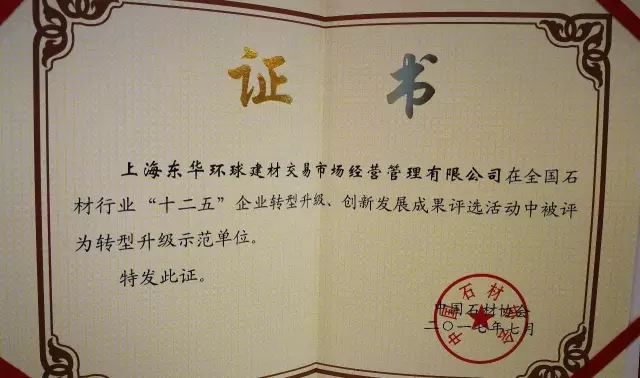 证 书
上海东华环球建材交易市场经营管理有限公司在全国石
材行业“十二五”企业转型升级、创新发展成果评选活动中被评
为转型升级示范单位。
特发此证。
中国石材协会
二〇一七年七月
中国石材协会